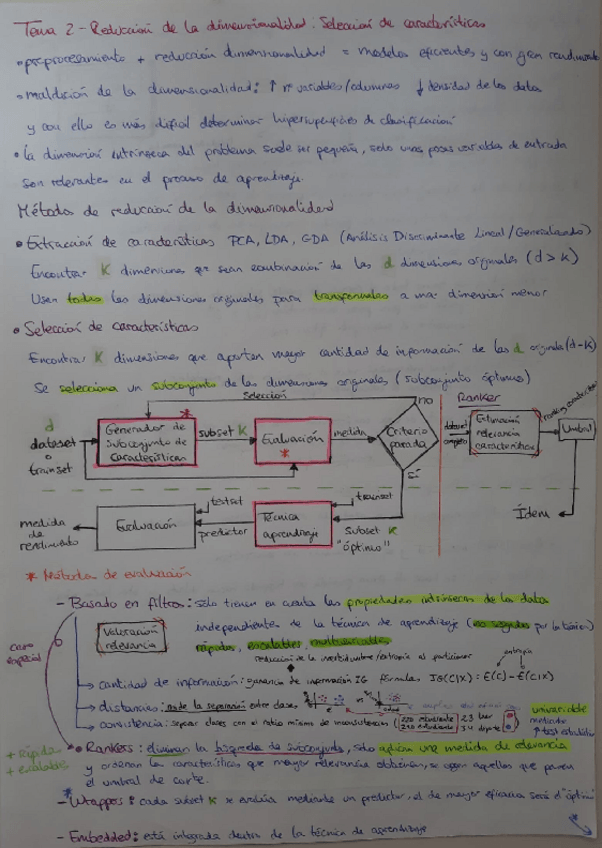 Tema 2 - Reducción de la dimensionalidad: Selección de características
• preprocesamiento + reducción dimensionalidad = modelos eficientes y con gran rendimiento
• maldición de la dimensionalidad: ↑ nº variables/columnas ↓ densidad de los data
y con ello es más difícil determinar hipersuperficies de clasificación
• la dimensión intrínseca del problema suele ser pequeña, solo unas pocas variables de entrada
son relevantes en el proceso de aprendizaje.
Métodos de reducción de la dimensionalidad
• Extracción de características PCA, LDA, GDA (Análisis Discriminante Lineal/Generalizado)
Encontrar K dimensiones que sean combinación de las d dimensiones originales (d > K)
Usan todas las dimensiones originales para transformarlas a una dimensión menor
• Selección de características
Encontrar K dimensiones que aportan mayor cantidad de información de las d originales (d-K)
Se selecciona un subconjunto de las dimensiones originales (subconjunto óptimo)
Selección
no
Ranker
d
dataset
o
trainset
Generador de
Subconjunto de
Características
*
subset K
Evaluación
*
medida
Criterio
parada
sí
dataset
completo
Estimación
relevancia
característica
ranking características
Umbral
Ídem
medida
de
rendimiento
Evaluación
testset
predictor
Técnica
aprendizaje
trainset
subset K
"óptimo"
* Métodos de evaluación
- Basado en filtros: solo tienen en cuenta las propiedades intrínsecas de los data
Valoración
relevancia
independientes de la técnica de aprendizaje (no sesgados por la técnica)
rápidos, escalables, multivariables
caso
especial
reducción de la incertidumbre/entropía al particionar
entropía
→ cantidad de información: ganancia de información IG fórmula IG(C|X) = E(C) - E(C|X)
→ distancias: mide la separación entre clases
→ consistencia: separar clases con el ratio mínimo de inconsistencias
univariable
+ rápidos
+ escalables
• Rankers: eliminan la búsqueda de subconjunto, solo aplican una medida de relevancia
y ordenan las características que mayor relevancia obtienen, se cogen aquellas que pasen
el umbral de corte.
- Wrappers: cada subset K se evalúa mediante un predictor, el de mayor eficacia será el "óptimo"
- Embedded: está integrada dentro de la técnica de aprendizaje